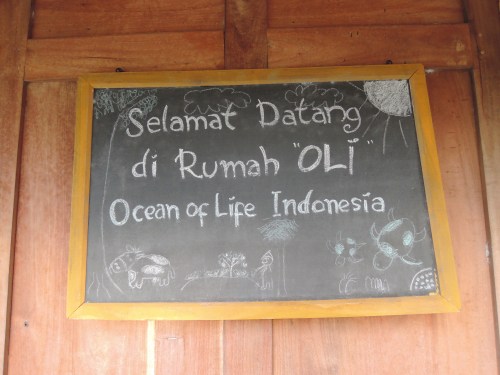 Selamat Datang
di Rumah "OLI"
Ocean of Life Indonesia